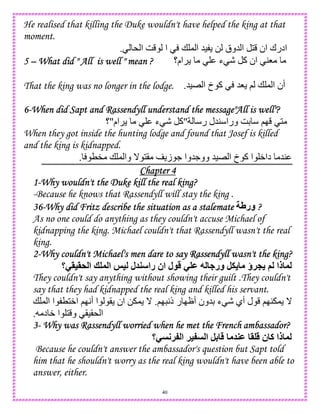 He realised that killing the Duke wouldn't have helped the king at that
moment.
ادرك ان قتل الدوق لن يفيد الملك في ا لوقت الحالي.
5 – What did " All is well " mean ? ما معني ان كل شيء علي ما يرام؟
That the king was no longer in the lodge. أن الملك لم يعد في كوخ الصيد.
6-When did Sapt and Rassendyll understand the message"All is well'?
متي فهم سابت وراسندل رسالة"كل شيء علي ما يرام"؟
When they got inside the hunting lodge and found that Josef is killed
and the king is kidnapped.
عندما داخلوا كوخ الصيد ووجدوا جوزيف مقتولا والملك مخطوفا.
Chapter 4
1-Why wouldn't the Duke kill the real king?
-Because he knows that Rassendyll will stay the king .
36-Why did Fritz describe the situation as a stalemate ورطة ?
As no one could do anything as they couldn't accuse Michael of
kidnapping the king. Michael couldn't that Rassendyll wasn't the real
king.
2-Why couldn't Michael's men dare to say Rassendyll wasn't the king?
لماذا لم يجرؤ مايكل ورجاله علي قول ان راسندل ليس الملك الحقيقي؟
They couldn't say anything without showing their guilt .They couldn't
say that they had kidnapped the real king and killed his servant.
لا يمكنهم قول أي شيء بدون أظهار ذنبهم. لا يمكن ان يقولوا أنهم اختطفوا الملك
الحقيقي و قتلوا خادمه.
3- Why was Rassendyll worried when he met the French ambassador?
لماذا كان قلقا عندما قابل السفير الفرنسي؟
Because he couldn't answer the ambassador's question but Sapt told
him that he shouldn't worry as the real king wouldn't have been able to
answer, either.
40